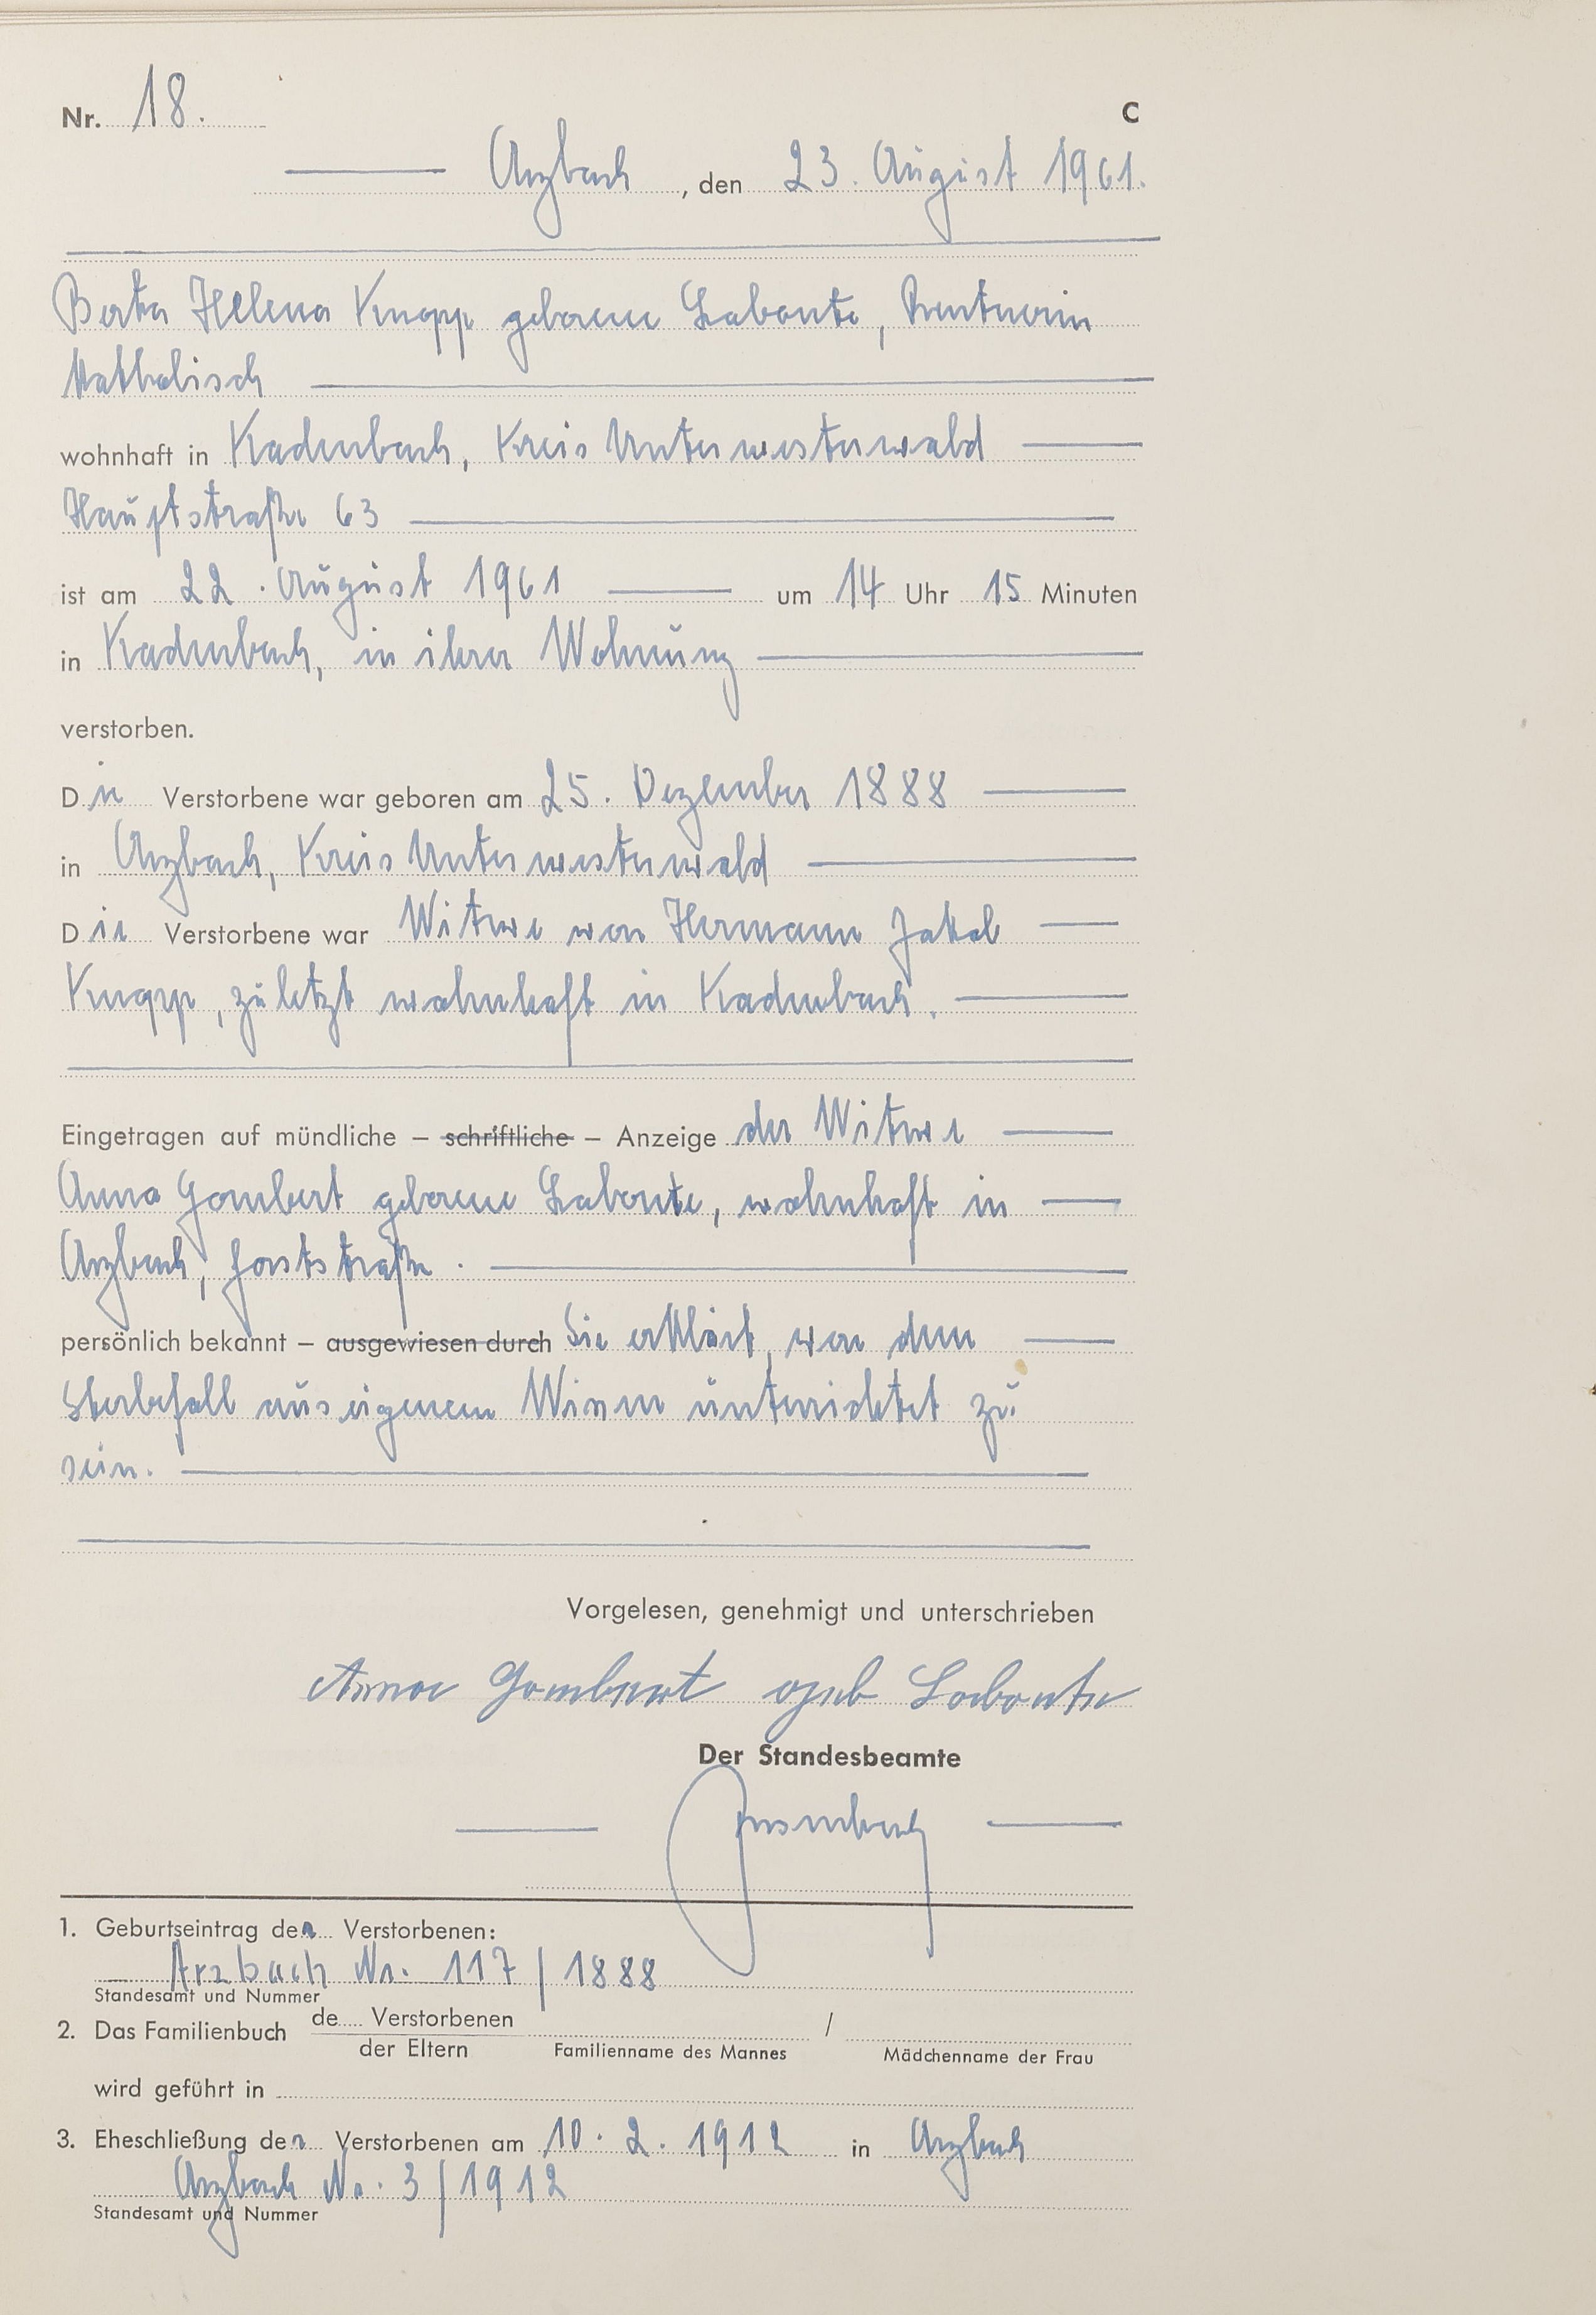 Nr. 18. C
Arzbach, den 23. August 1961.
Berta Helena Knopp geborene Labonte, Rentnerin
Katholisch
wohnhaft in Kadenbach, Kreis Unterwesterwald
Hauptstraße 63
ist am 22. August 1961 um 14 Uhr 15 Minuten
in Kadenbach, in ihrer Wohnung
verstorben.
Die Verstorbene war geboren am 25. Dezember 1888
in Arzbach, Kreis Unterwesterwald
Die Verstorbene war Witwe von Hermann Jakob
Knopp, zuletzt wohnhaft in Kadenbach.
Eingetragen auf mündliche – schriftliche – Anzeige der Witwe
Anna Gombert geborene Labonte, wohnhaft in
Arzbach, Forststraße.
persönlich bekannt – ausgewiesen durch Sie erklärt, von dem
Sterbefall aus eigenem Wissen unterrichtet zu
sein.
Vorgelesen, genehmigt und unterschrieben
Anna Gombert geb Labonte
Der Standesbeamte
1. Geburtseintrag der Verstorbenen:
Arzbach Nr. 117/1888
Standesamt und Nummer
2. Das Familienbuch de Verstorbenen /
der Eltern Familienname des Mannes Mädchenname der Frau
wird geführt in
3. Eheschließung der Verstorbenen am 10. 2. 1912 in Arzbach
Arzbach Nr. 3/1912
Standesamt und Nummer